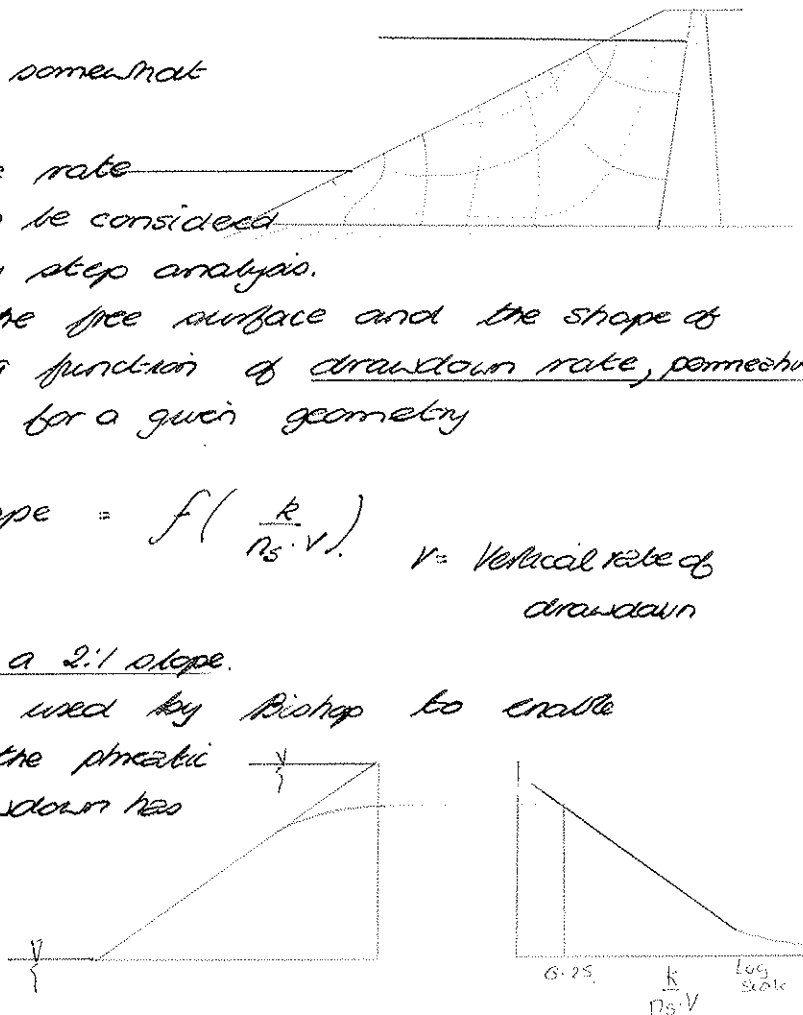 somewhat
rate
be considered
step analysis.
the free surface and the shape of
a function of drawdown rate, permeabi
for a given geometry
ope = f( k / ns·V ).
V = Vertical rate of
drawdown
a 2:1 slope.
used by Bishop to enable
the phreatic
wdown has
0.25
k / ns·V
Log
scale